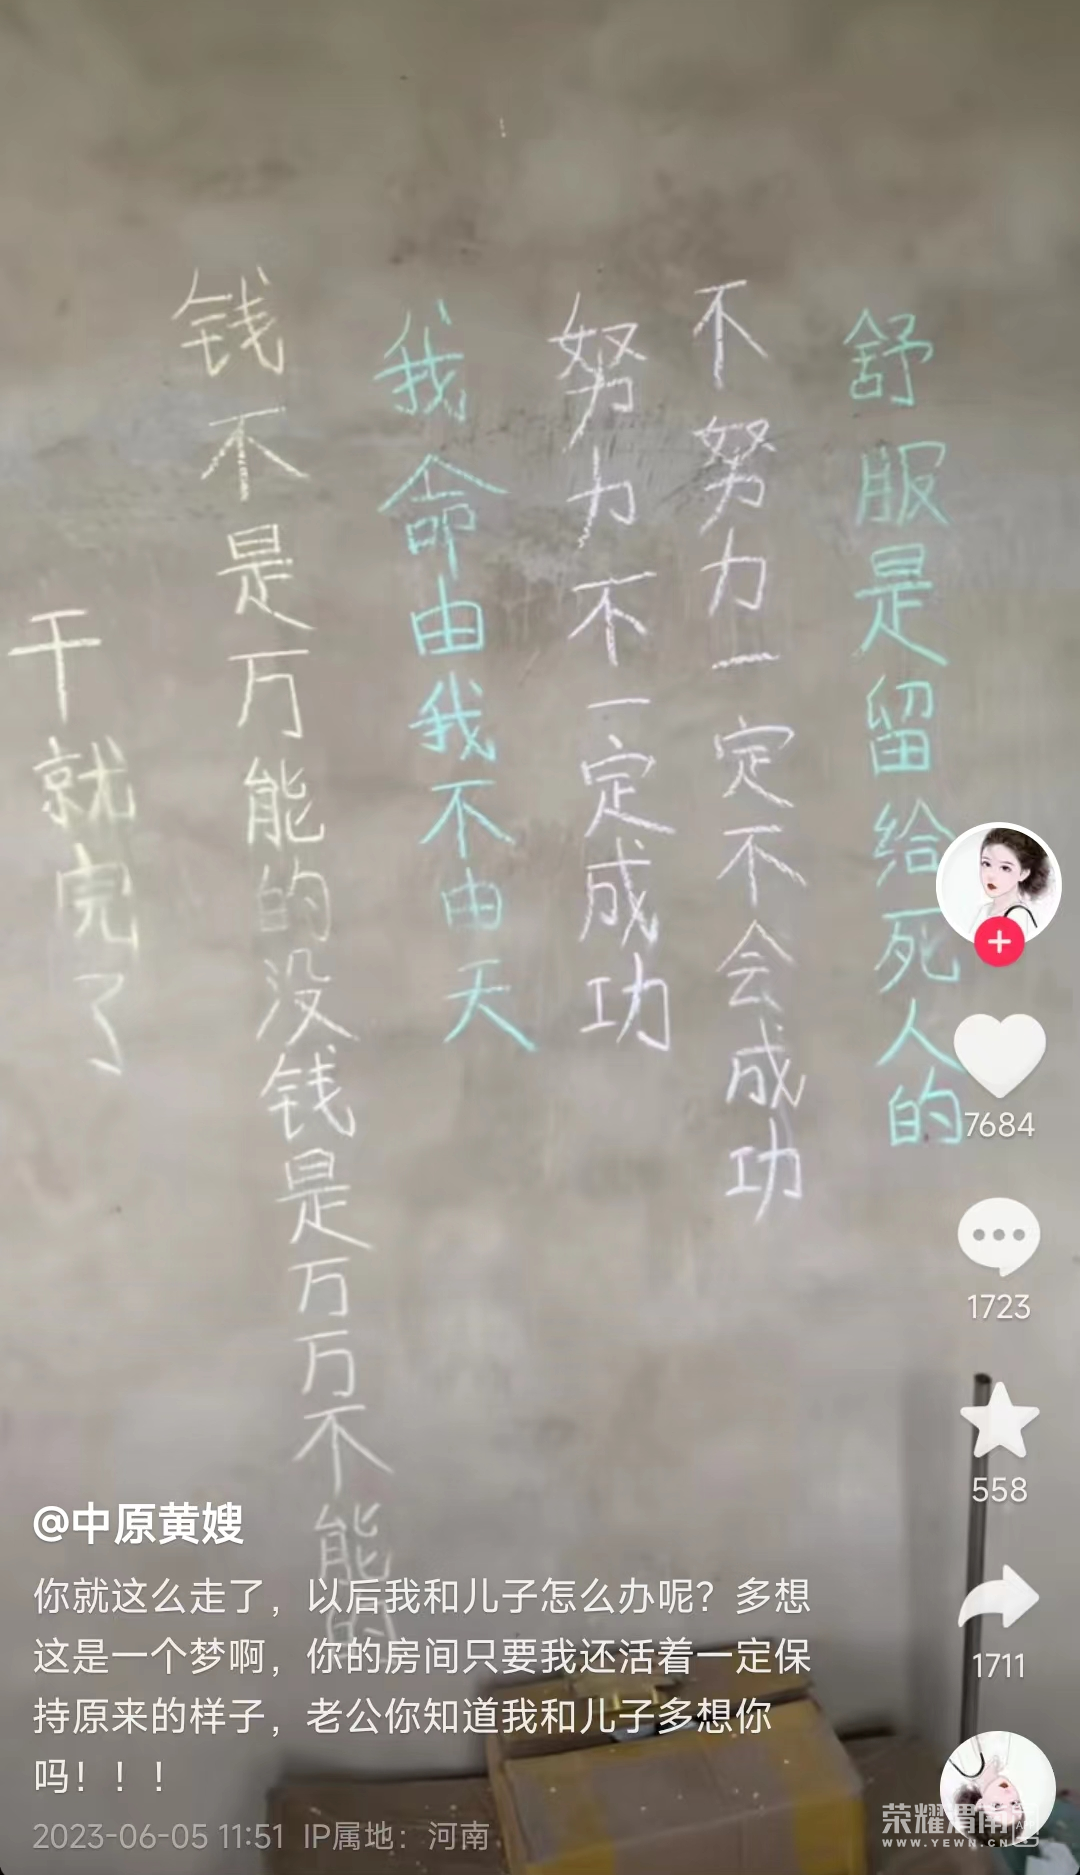 舒服是留给死人的
不努力一定不会成功
努力不一定成功
我命由我不由天
钱不是万能的没钱是万万不能的
干就完了
7684
1723
558
1711
@中原黄嫂
你就这么走了，以后我和儿子怎么办呢？多想
这是一个梦啊，你的房间只要我还活着一定保
持原来的样子，老公你知道我和儿子多想你
吗！！！
2023-06-05 11:51 IP属地：河南
荣耀渭南网
WWW.YEWN.CN